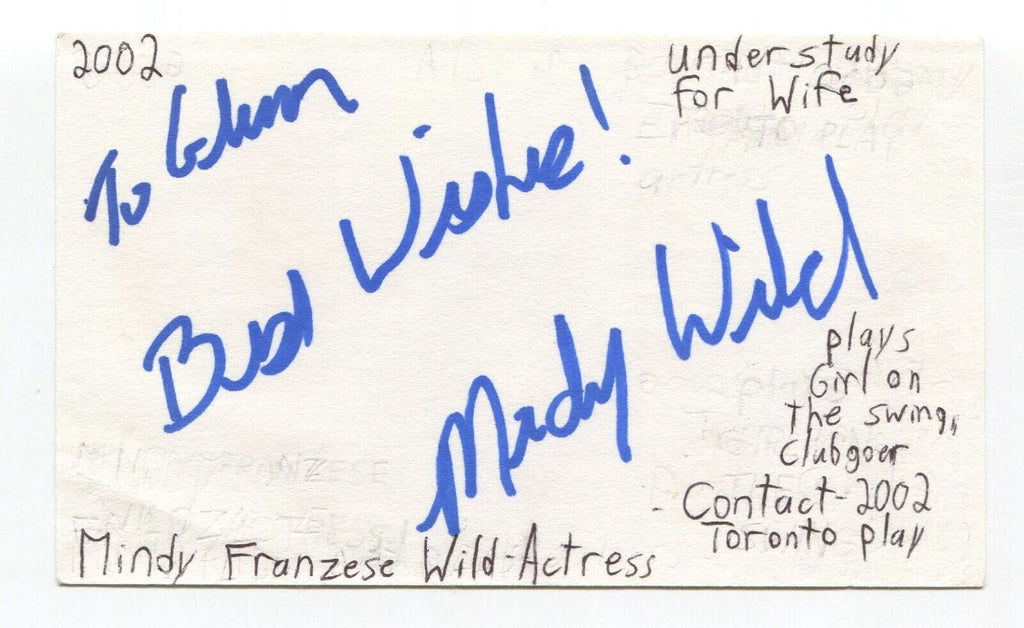 2002
understudy
for Wife
To Glenn
Best Wishes!
Mindy Wild
plays
Girl on
the swing,
Clubgoer
Contact-2002
Toronto play
Mindy Franzese Wild-Actress